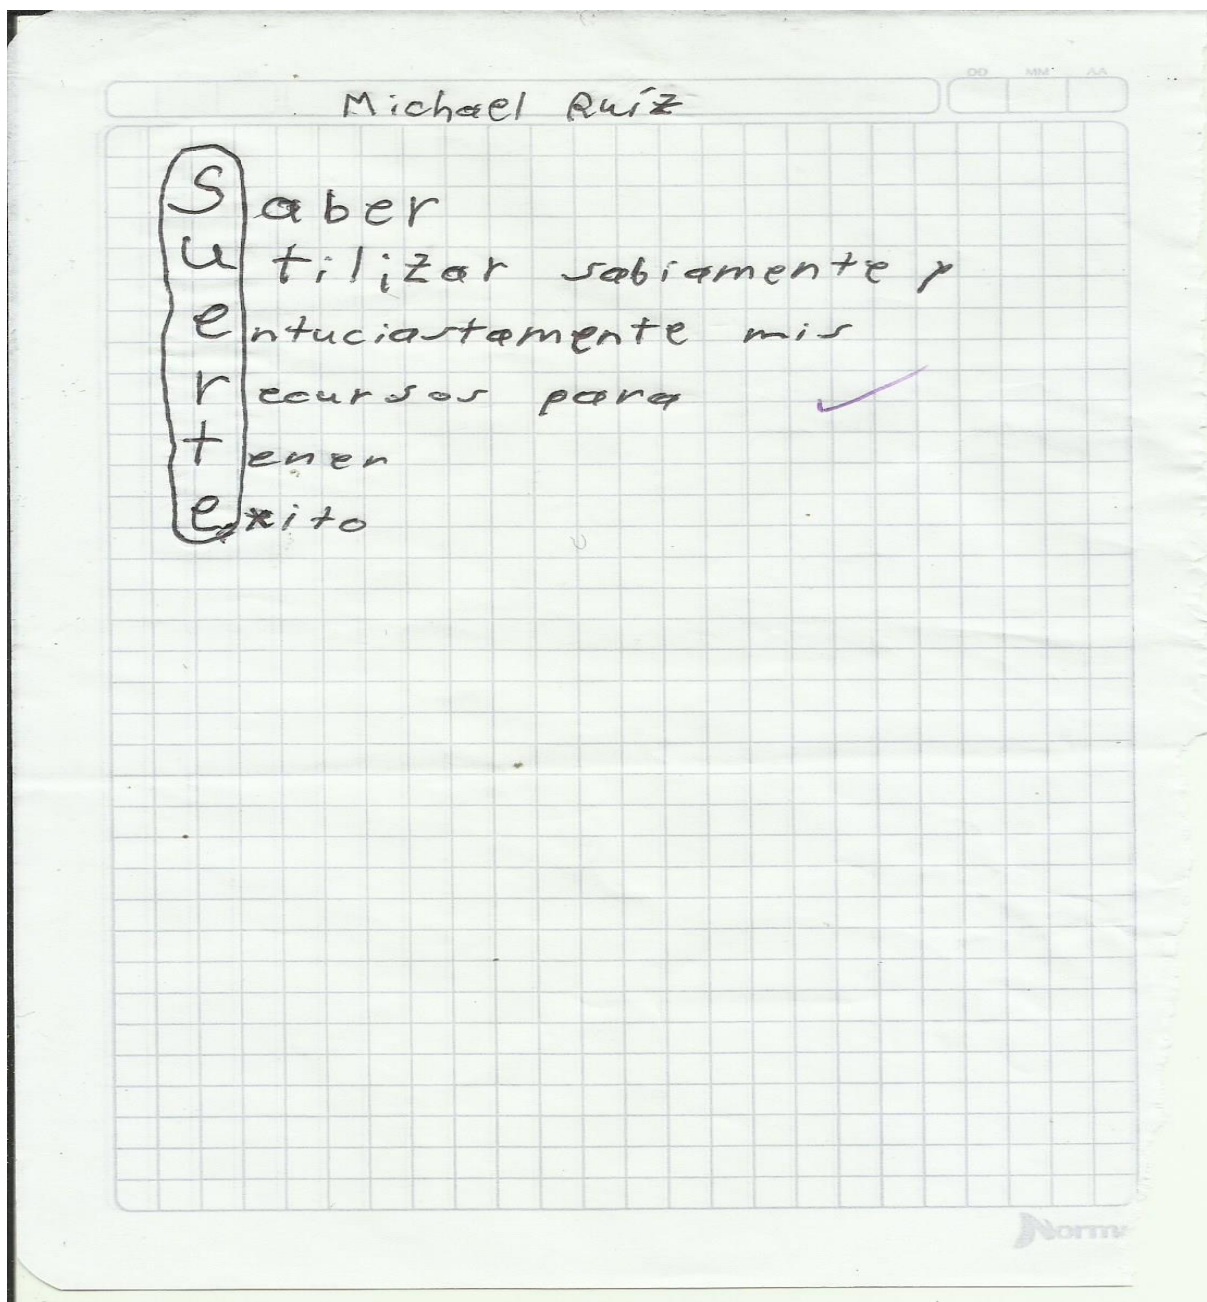 DD MM AA
Michael Ruíz
Saber
utilizar sabiamente y
entuciastamente mis
recursos para
tener
exito
Norma